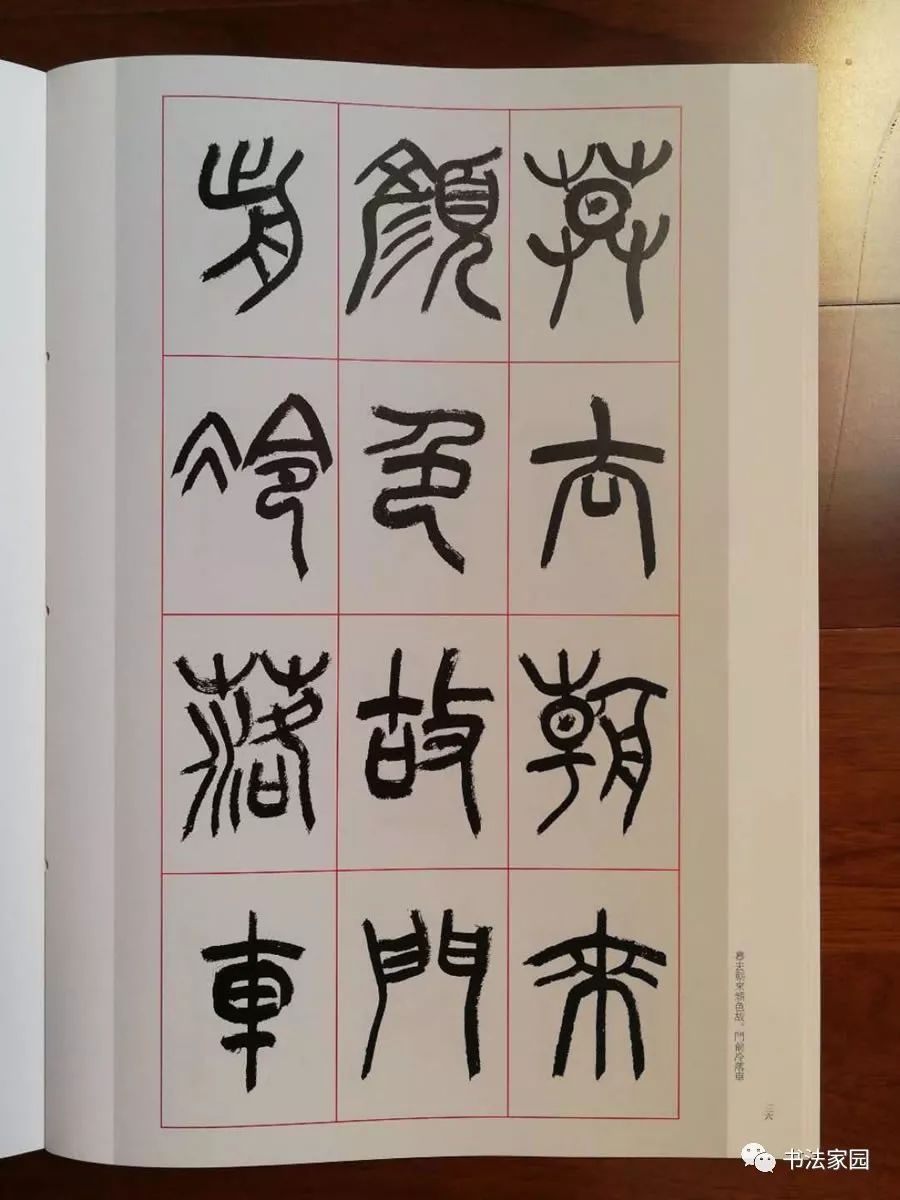 莫去朝來
顏色故門
歬冷落車
暮去朝來顏色故。門前冷落車
三六
书法家园